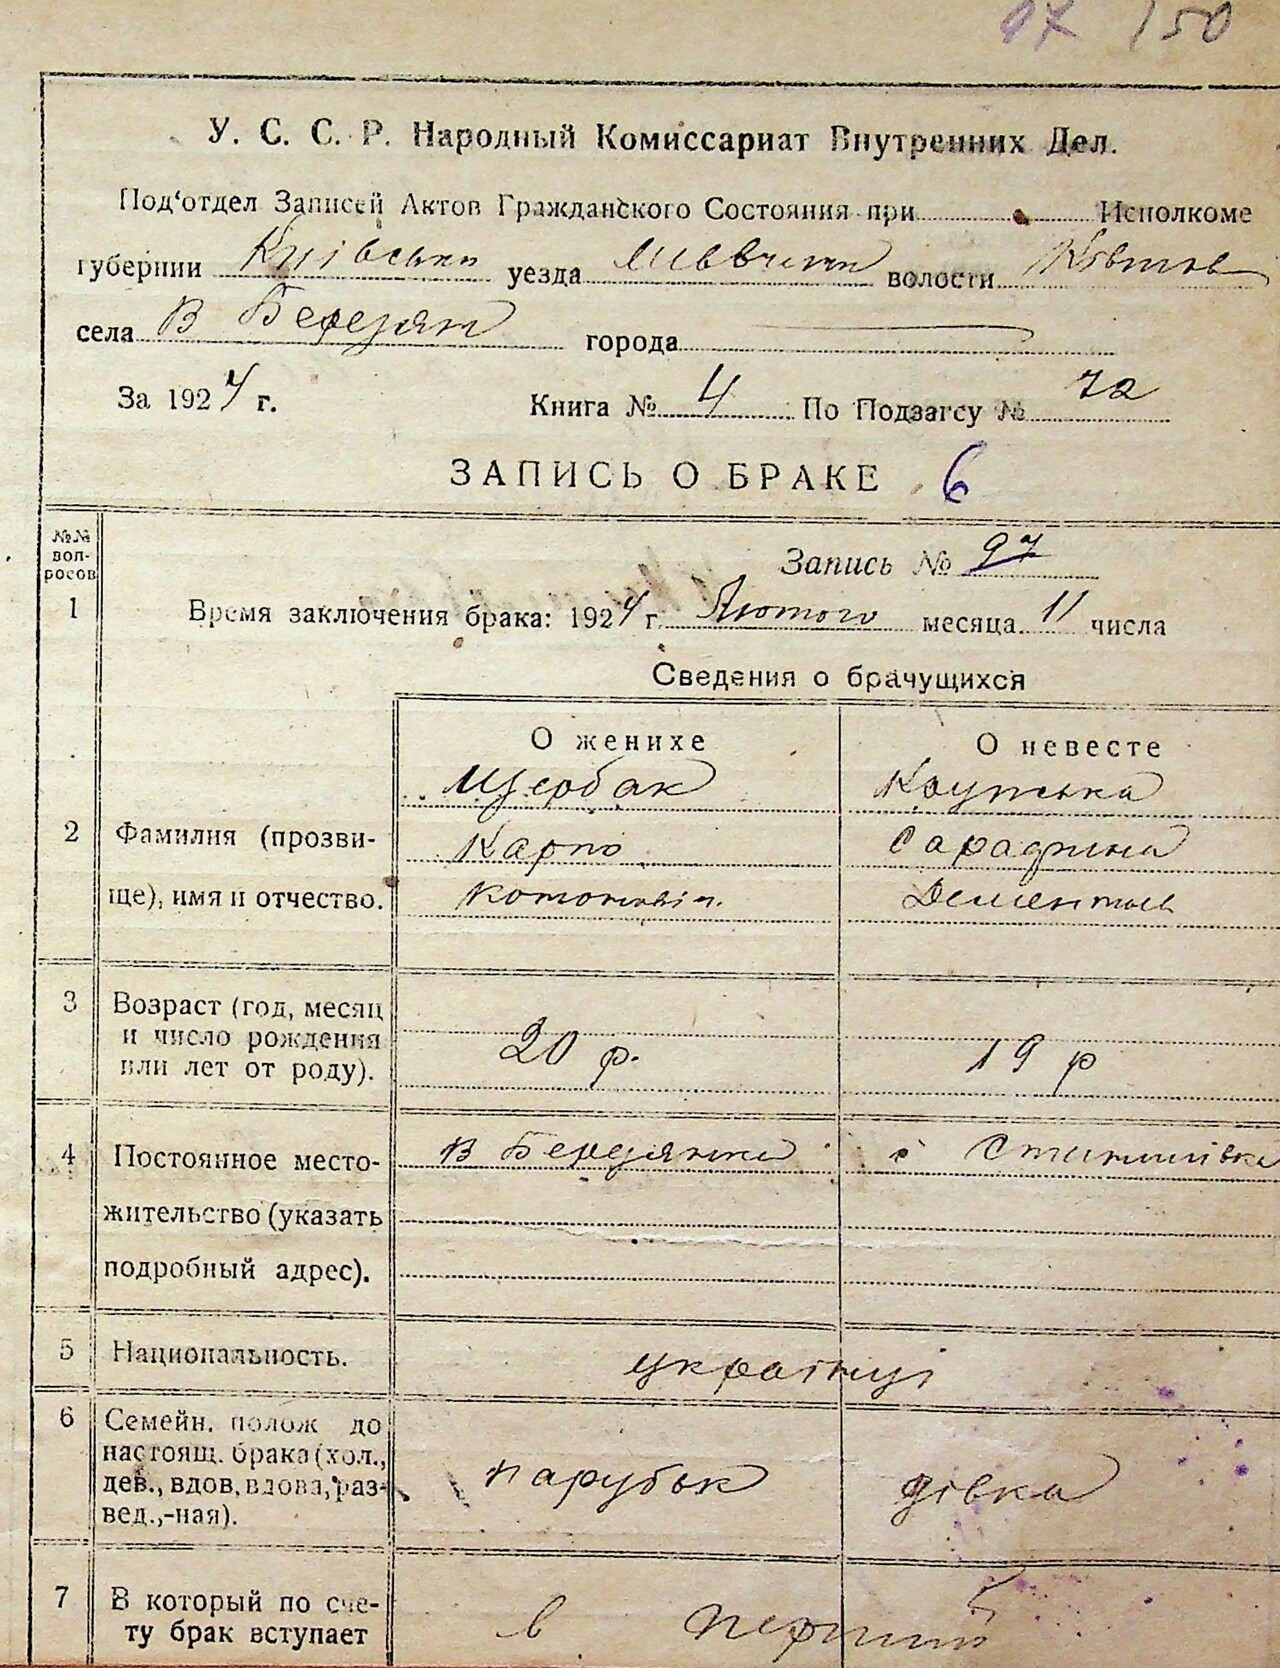 97 150
У. С. С. Р. Народный Комиссариат Внутренних Дел.
Под'отдел Записей Актов Гражданского Состояния при Исполкоме
губернии Київська уезда волости
села В Березян города
За 1924 г. Книга № 4 По Подзагсу № 72
ЗАПИСЬ О БРАКЕ 6
№№ воп-росов
Запись № 97
1 Время заключения брака: 1924 г. Лютого месяца 11 числа
Сведения о брачущихся
О женихе О невесте
Щербак
2 Фамилия (прозви- Карпо
ще), имя и отчество. Дементьев
3 Возраст (год, месяц
и число рождения 20 р. 19 р
или лет от роду).
4 Постоянное место- В Березянка
жительство (указать
подробный адрес).
5 Национальность. українці
6 Семейн. полож до
настоящ. брака (хол.,
дев., вдов, вдова, раз- парубок дівка
вед.,-ная).
7 В который по сче-
ту брак вступает в перший